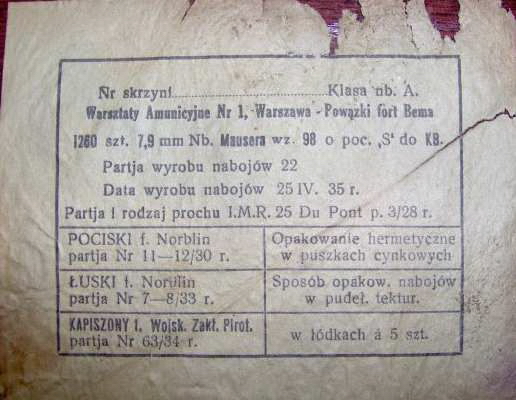 Nr skrzyni........................Klasa nb. A.
Warsztaty Amunicyjne Nr 1, - Warszawa - Powązki fort Bema
1260 szt. 7,9 mm Nb. Mausera wz. 98 o poc. „S" do KB.
Partja wyrobu nabojów 22
Data wyrobu nabojów 25 IV. 35 r.
Partja i rodzaj prochu I.M.R. 25 Du Pont p. 3/28 r.
POCISKI f. Norblin
partja Nr 11—12/30 r.
Opakowanie hermetyczne
w puszkach cynkowych
ŁUSKI f. Norblin
partja Nr 7—8/33 r.
Sposób opakow. nabojów
w pudeł. tektur.
KAPISZONY f. Wojsk. Zakł. Pirot.
partja Nr 63/34 r.
w łódkach á 5 szt.